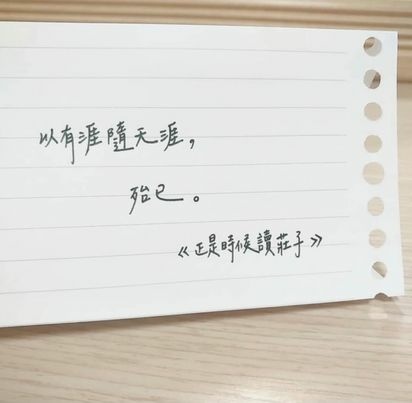 以有涯隨天涯，
殆已。
《正是時候讀莊子》